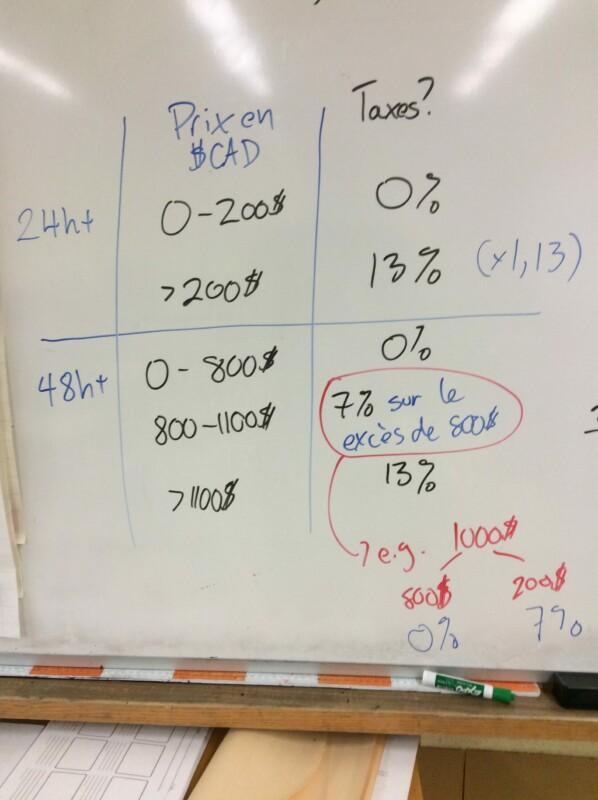 Prix en
$CAD
Taxes?
24h+
0-200$
0%
>200$
13% (x1,13)
48h+
0-800$
0%
800-1100$
7% sur le
excès de 800$
>1100$
13%
→ e.g.
1000$
800$
200$
0%
7%
EXPO